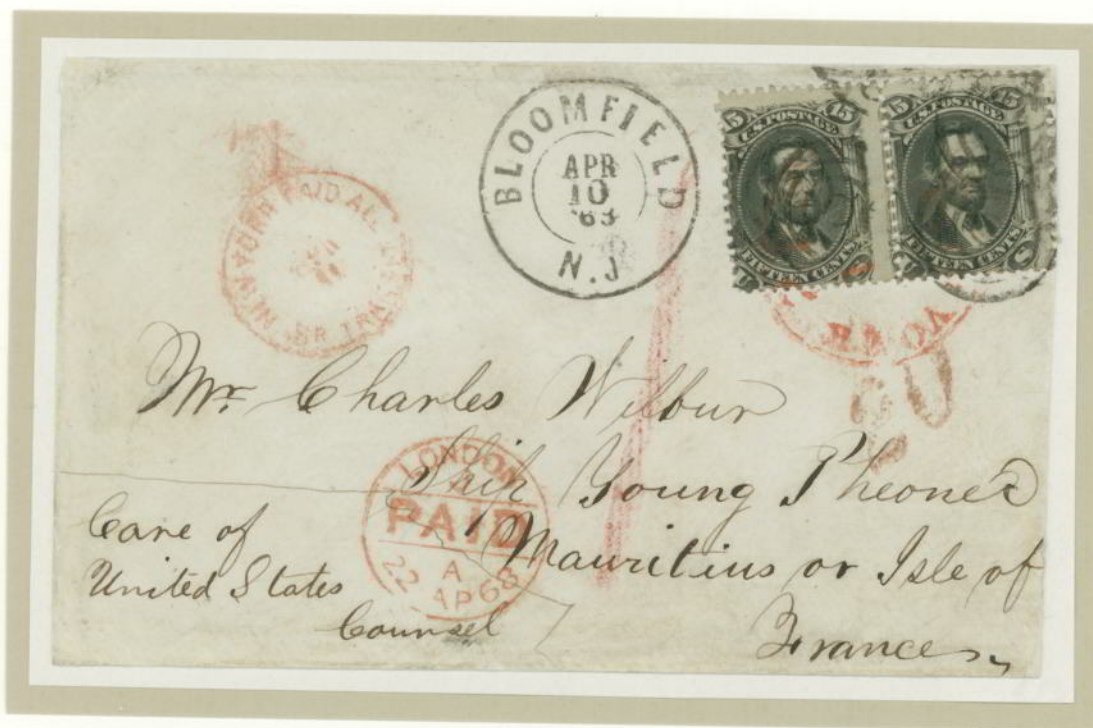 BLOOMFIELD
APR
10
'68
N.J.
15 15
U.S. POSTAGE.
FIFTEEN CENTS.
15 15
U.S. POSTAGE.
FIFTEEN CENTS.
NEW YORK PAID ALL
BR. TRANSIT
Mr. Charles Wilbur
Ship Young Pheonex
Mauritius or Isle of
France
LONDON
PAID
A
22 AP 68
Care of
United States
Counsel